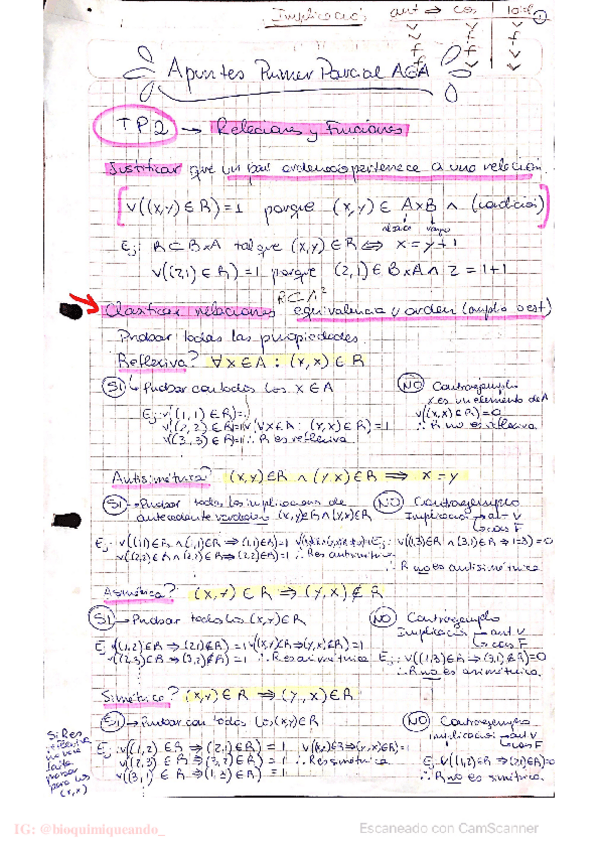 Implicación ant ⇒ cos | log
v v v
v f f
f v v
f f v
Apuntes Primer Parcial AGA
TP2 → Relaciones y Funciones
Justificar que un par ordenado pertenece a una relación.
v((x,y) ∈ R) = 1 porque (x,y) ∈ A×B ∧ (condición)
Ej: R ⊂ B×A tal que (x,y) ∈ R ⇔ x = y + 1
v((2,1) ∈ R) = 1 porque (2,1) ∈ B×A ∧ 2 = 1+1
R ⊂ A²
Clasificar relaciones equivalencia y orden (amplio o est)
Probar todas las propiedades.
Reflexiva? ∀x ∈ A : (x,x) ∈ R
SI → Probar con todos los x ∈ A
Ej: v((1,1) ∈ R) = 1
v((2,2) ∈ R) = 1 v(∀x ∈ A : (x,x) ∈ R) = 1
v((3,3) ∈ R) = 1 ∴ R es reflexiva
NO Contraejemplo
x es un elemento de A
v((x,x) ∈ R) = 0
∴ R no es reflexiva
Antisimétrica? (x,y) ∈ R ∧ (y,x) ∈ R ⇒ x = y
SI → Probar todas las implicaciones de
antecedente verdadero (x,y) ∈ R ∧ (y,x) ∈ R
Ej: v((1,1) ∈ R ∧ (1,1) ∈ R ⇒ (1,1) ∈ R) = 1
v((2,2) ∈ R ∧ (2,2) ∈ R ⇒ (2,2) ∈ R) = 1 ∴ R es antisimétrica
NO Contraejemplo
Implicación → ant = V
↳ cons F
Ej: v((1,3) ∈ R ∧ (3,1) ∈ R ⇒ 1=3) = 0
∴ R no es antisimétrica
Asimétrica? (x,y) ∈ R ⇒ (y,x) ∉ R
SI → Probar todos los (x,y) ∈ R
Ej: v((1,2) ∈ R ⇒ (2,1) ∉ R) = 1 v((x,y) ∈ R ⇒ (y,x) ∉ R) = 1
v((2,3) ∈ R ⇒ (3,2) ∉ R) = 1 ∴ R es asimétrica
NO Contraejemplo
Implicación → ant V
↳ cons F
Ej: v((1,3) ∈ R ⇒ (3,1) ∉ R) = 0
∴ R no es asimétrica.
Simétrica? (x,y) ∈ R ⇒ (y,x) ∈ R
SI → Probar con todos los (x,y) ∈ R
Ej: v((1,2) ∈ R ⇒ (2,1) ∈ R) = 1
v((2,3) ∈ R ⇒ (3,2) ∈ R) = 1 ∴ R es simétrica
v((3,1) ∈ R ⇒ (1,3) ∈ R) = 1
NO Contraejemplo
implicación → ant V
↳ cons F
Ej: v((1,2) ∈ R ⇒ (2,1) ∈ R) = 0
∴ R no es simétrica.
Si R es
reflexiva
no hace
falta
probar
para los
(x,x)
IG: @bioquimiqueando_
Escaneado con CamScanner